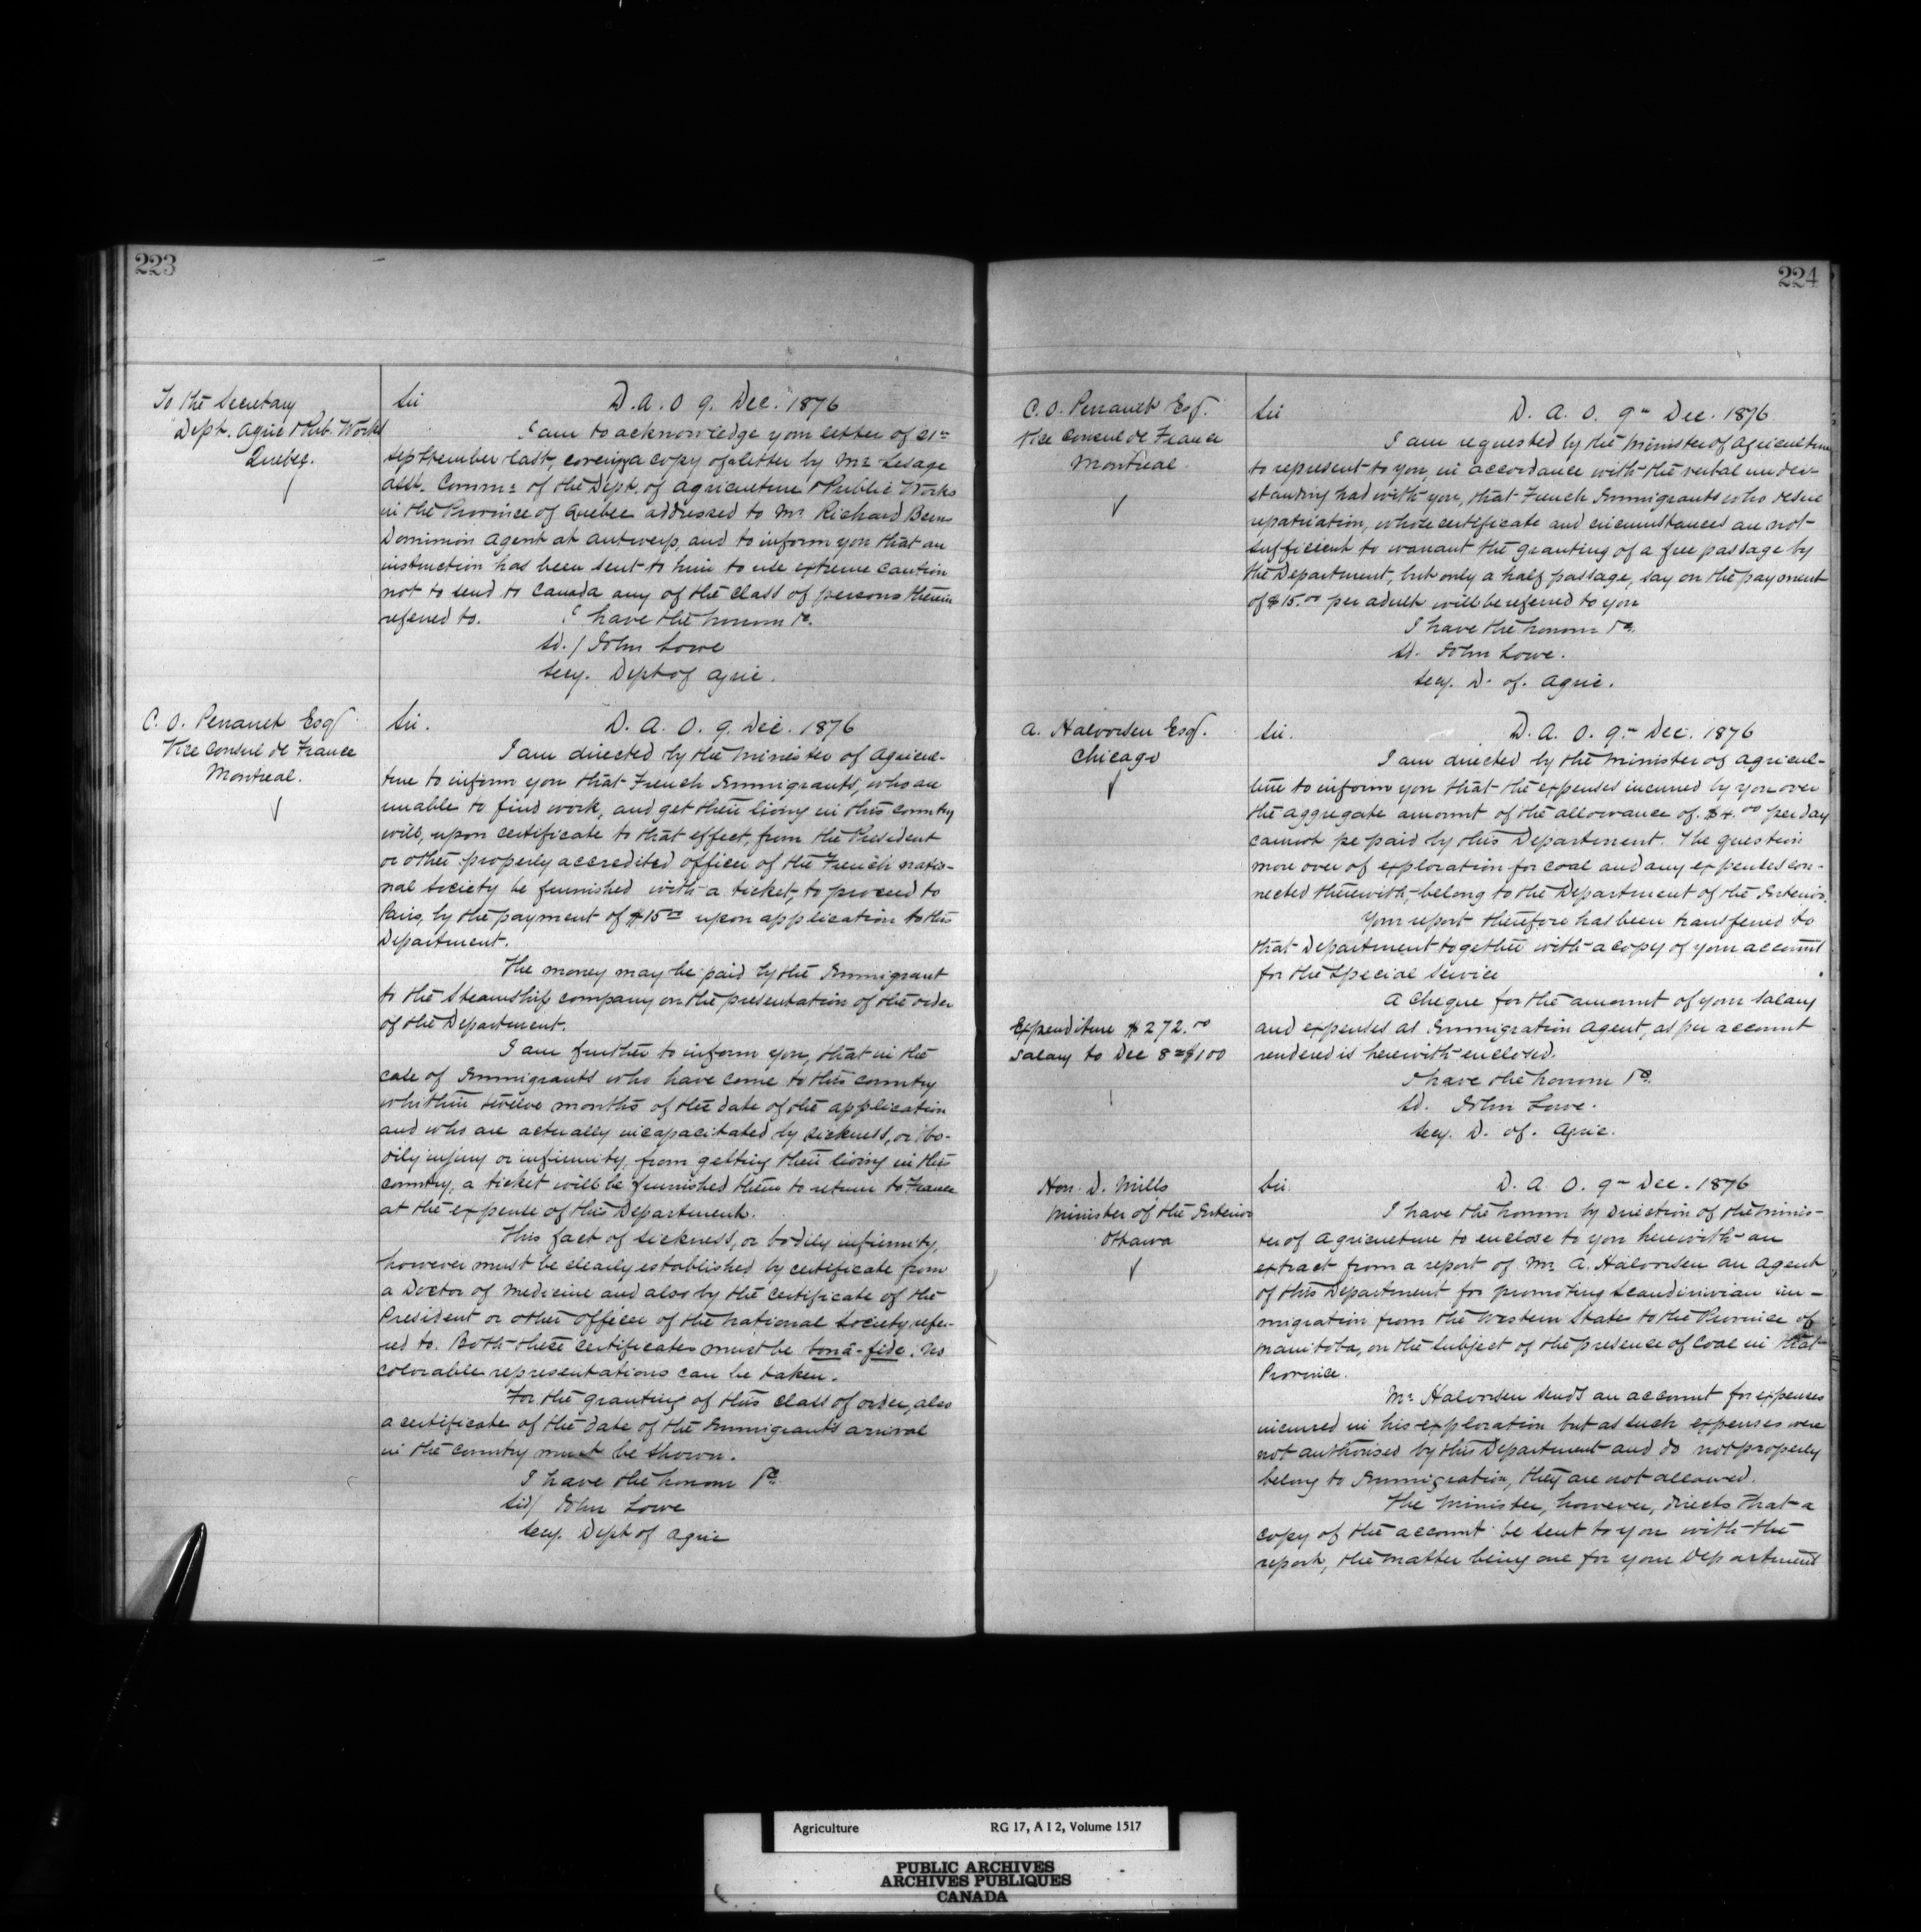 223
To the Secretary
Dept. Agric & Pub. Works
Quebec.
Sir D. A. O 9. Dec. 1876
I am to acknowledge your letter of 21st
September last, covering a copy of a letter by Mr. Lesage
asst. Commr. of the Dept. of Agriculture & Public Works
in the Province of Quebec addressed to Mr. Richard Berns
Dominion Agent at Antwerp, and to inform you that an
instruction has been sent to him to use extreme caution
not to send to Canada any of the class of persons therein
referred to. I have the honour &c.
Sd./ John Lowe
Secy. Dept of Agric.
C. O. Perrault Esqr.
Vice Consul de France
Montreal.
Sir. D. A. O. 9. Dec. 1876
I am directed by the Minister of Agricul-
ture to inform you that French Immigrants, who are
unable to find work, and get their living in this country
will, upon certificate to that effect, from the President
or other properly accredited officer of the French natio-
nal Society be furnished with a ticket, to proceed to
Paris, by the payment of $15.00 upon application to this
Department.
The money may be paid by the Immigrant
to the Steamship company on the presentation of the order
of the Department.
I am further to inform you, that in the
case of Immigrants who have come to this country
whithin twelve months of the date of the application
and who are actually incapacitated by sickness, or bo-
dily injury or infirmity, from getting their living in this
country, a ticket will be furnished them to return to France
at the expense of this Department.
This fact of sickness, or bodily infirmity,
however must be clearly established by certificate from
a Doctor of Medicine and also by the certificate of the
President or other officer of the national Society refer-
red to. Both these certificates must be bonâ-fide. No
colorable representations can be taken.
For the granting of this class of order, also
a certificate of the date of the Immigrants arrival
in the country must be shown.
I have the honour &c.
Sd/ John Lowe
Secy. Dept of Agric
224
C. O. Perrault Esqr.
Vice Consul de France
Montreal.
Sir D. A. O. 9th Dec. 1876
I am requested by the Minister of Agriculture
to represent to you, in accordance with the verbal under-
standing had with you, that French Immigrants who desire
repatriation, whose certificate and circumstances are not
sufficient to warrant the granting of a free passage by
the Department, but only a half passage, say on the payment
of $15.00 per adult will be referred to you
I have the honour &c.
Sd. John Lowe.
Secy. D. of. Agric.
A. Halvorsen Esqr.
Chicago
Sir. D. A. O. 9th Dec. 1876
I am directed by the Minister of Agricul-
ture to inform you that the expenses incurred by you over
the aggregate amount of the allowance of $4.00 per day
cannot pe paid by this Department. The question
more over of exploration for coal and any expenses con-
nected therewith, belong to the Department of the Interior.
Your report therefore has been transferred to
that Department together with a copy of your account
for the special service
A cheque for the amount of your salary
and expenses as Immigration Agent, as per account
rendered is herewith enclosed.
Expenditure $272.00
Salary to Dec 8th $100
I have the honour &c.
Sd. John Lowe.
Secy. D. of. Agric.
Hon. D. Mills
Minister of the Interior
Ottawa
Sir. D. A. O. 9th Dec. 1876
I have the honour by direction of the Minis-
ter of Agriculture to enclose to you herewith an
extract from a report of Mr. A. Halvorsen an Agent
of this Department for promoting Scandinivian im-
migration from the Western States to the Province of
Manitoba, on the subject of the presence of Coal in that
Province.
Mr. Halvorsen sends an account for expenses
incurred in his exploration but as such expenses were
not authorised by this Department and do not properly
belong to Immigration, they are not allowed.
The Minister, however, directs that a
copy of the account be sent to you with the
report, the matter being one for your Department
Agriculture RG 17, A I 2, Volume 1517
PUBLIC ARCHIVES
ARCHIVES PUBLIQUES
CANADA